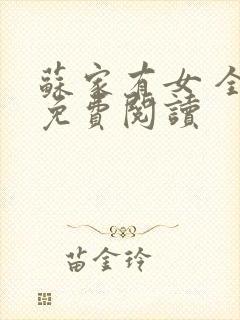 蘇家有女 全
免費閱讀
苗金玲